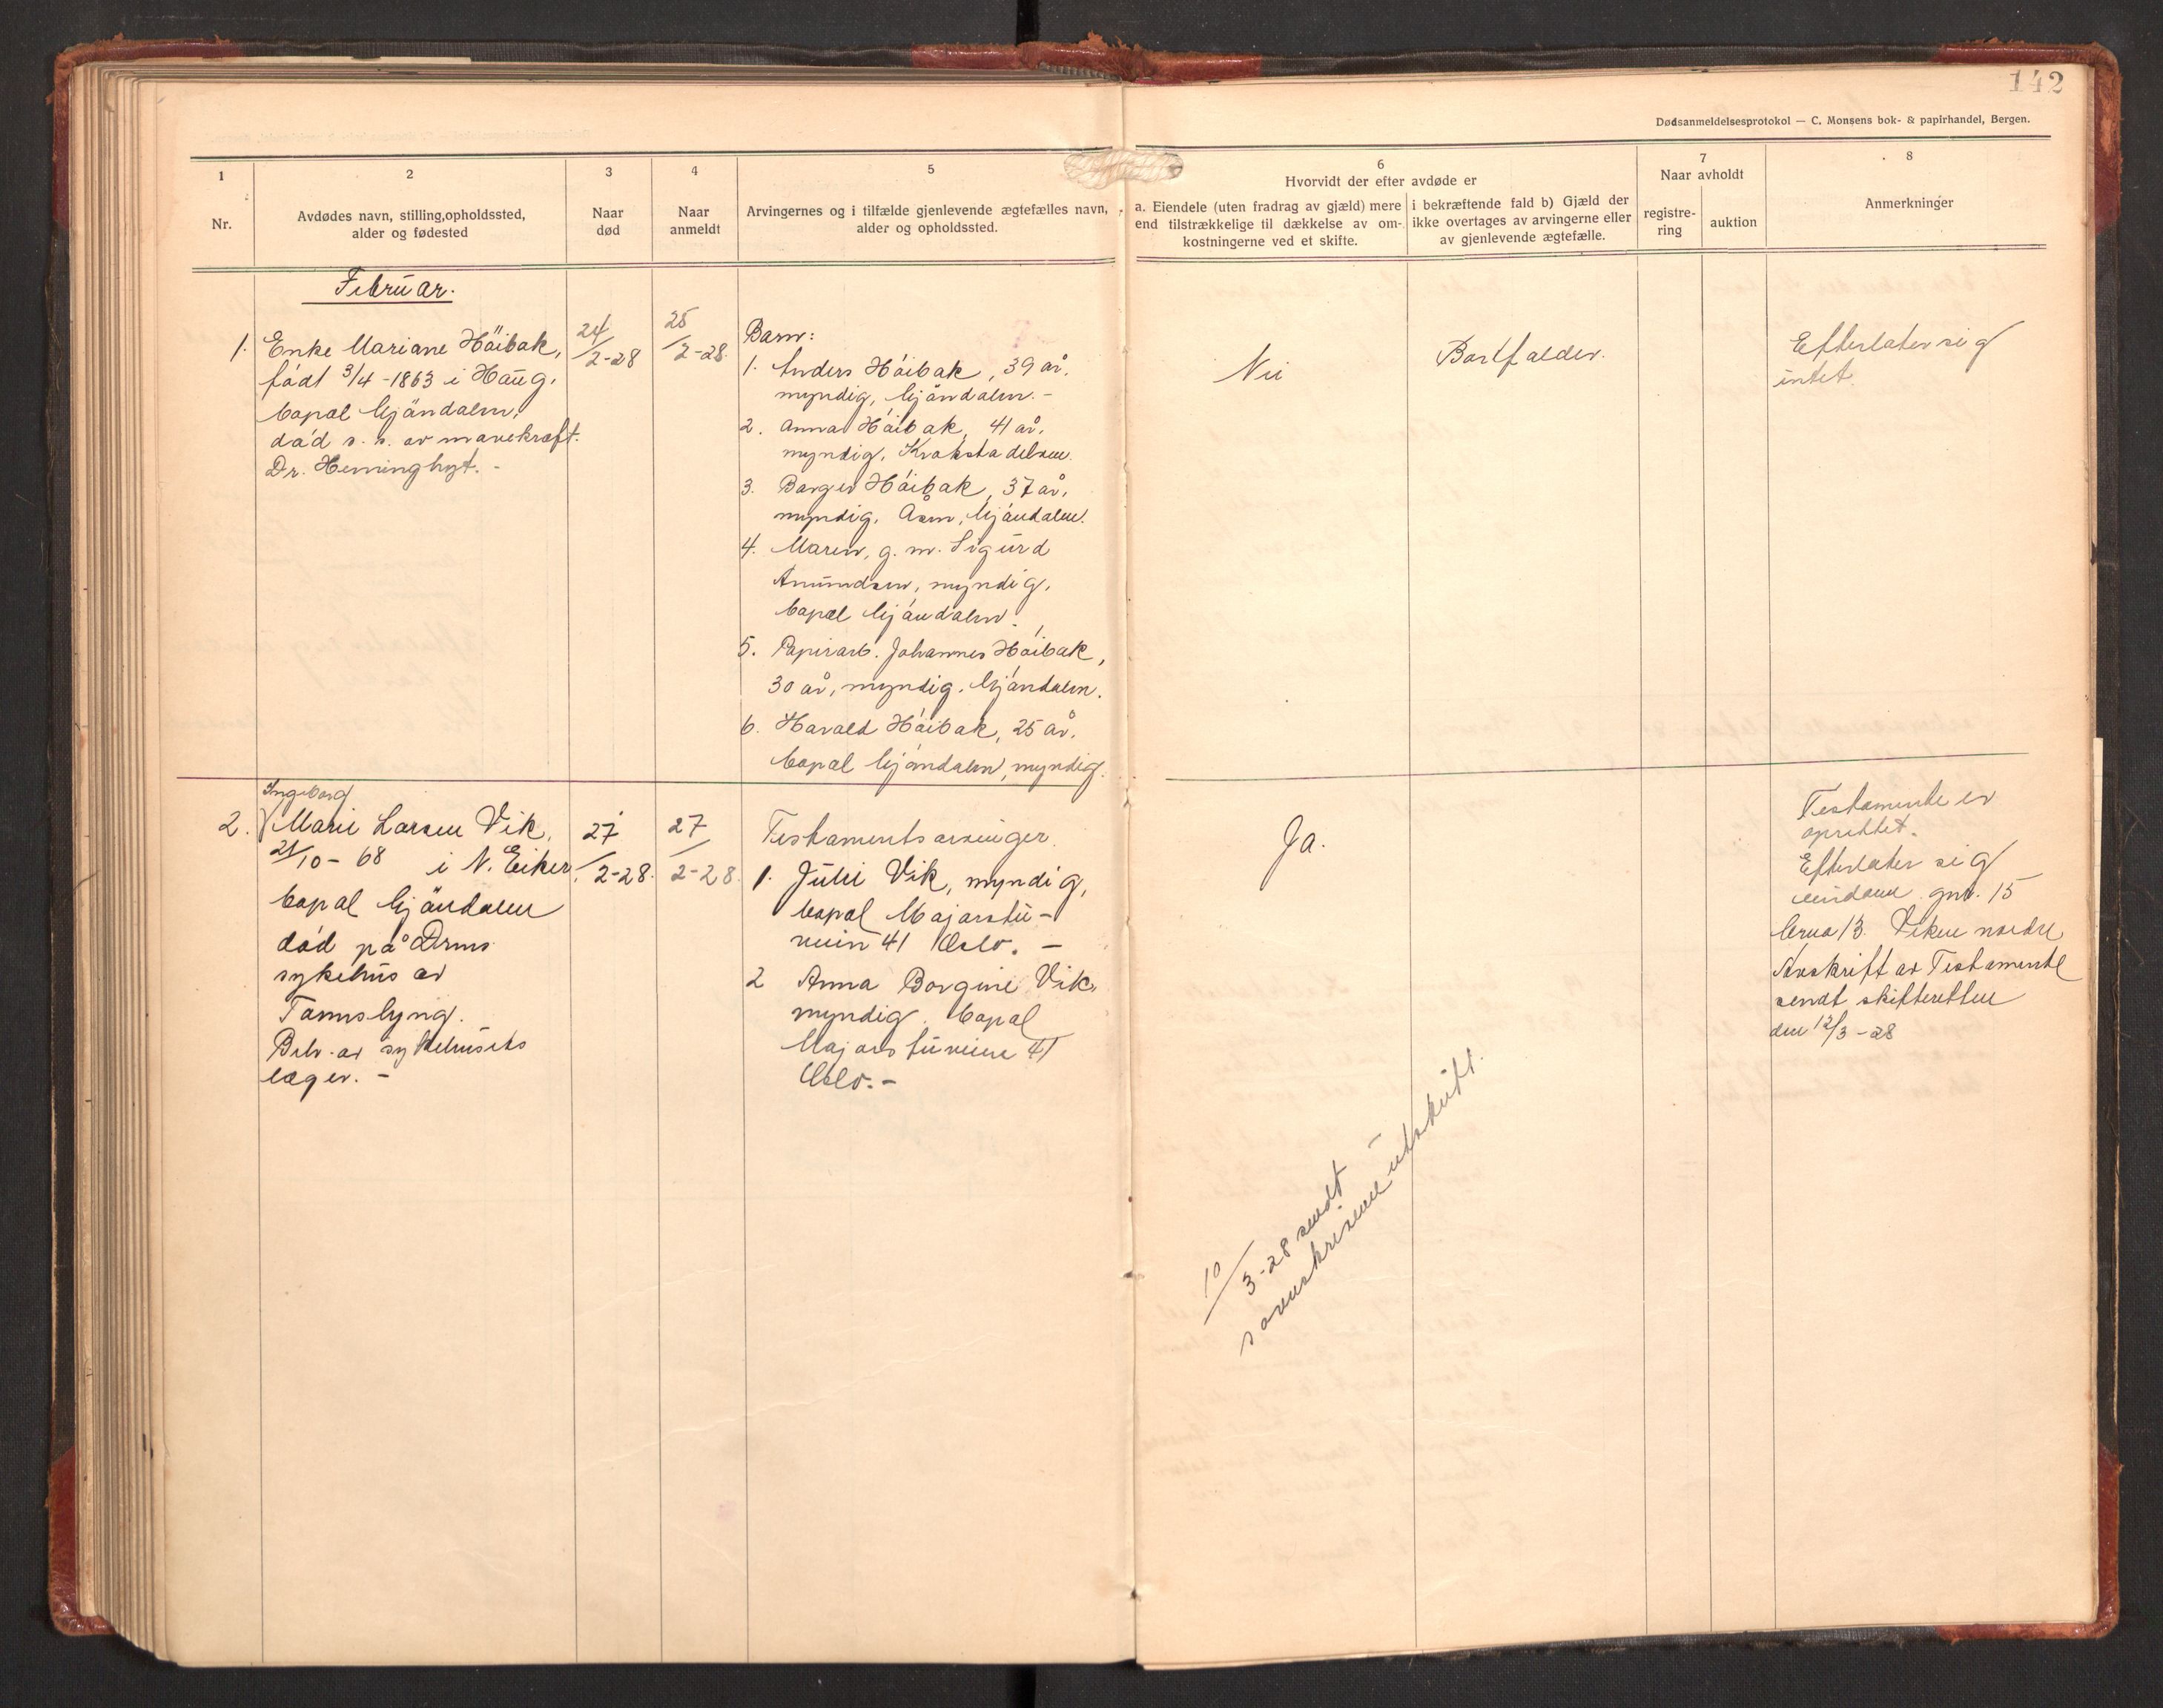 142
Dødsanmeldelsesprotokol — C. Monsens bok- & papirhandel, Bergen.
1
Nr.
2
Avdødes navn, stilling, opholdssted,
alder og fødested
3
Naar
død
4
Naar
anmeldt
5
Arvingernes og i tilfælde gjenlevende ægtefælles navn,
alder og opholdssted.
6
Hvorvidt der efter avdøde er
a. Eiendele (uten fradrag av gjæld) mere
end tilstrækkelige til dækkelse av om-
kostningerne ved et skifte.
i bekræftende fald b) Gjæld der
ikke overtages av arvingerne eller
av gjenlevende ægtefælle.
7
Naar avholdt
registre-
ring
auktion
8
Anmerkninger
Februar.
1.
Enke Mariane Höibak,
född 3/4 - 1863 i Haug.
bopæl Mjöndalen,
död s. s. av mavekræft.
Dr. Henninghyt. -
24/2-28
25/2-28.
Barn:
1. Anders Höibak, 39 år.
myndig, Mjöndalen. -
2. Anna Höibak, 41 år.
myndig, Krokstadelven.
3. Borger Höibak, 37 år.
myndig. Åsen, Mjöndalen.
4. Maren, g. m. Sigurd
Amundsen, myndig.
bopæl Mjöndalen.
5. Papirarb. Johannes Höibak,
30 år, myndig. Mjöndalen.
6. Harald Höibak, 25 år.
bopæl Mjöndalen, myndig.
Nei
Bortfalder.
Efterlater sig
intet.
2.
Ingeborg
Marie Larsen Vik,
21/10 - 68 i N. Eiker.
bopæl Mjöndalen
död på Drms
sykehus av
Behv. av sykehusets
læger. -
27/2-28.
27/2-28.
Testamentsarvinger.
1. Julie Vik, myndig,
bopæl Majorstu-
veien 41 Oslo. -
2 Anna Borgine Vik,
myndig. bopæl
Majorstuveien 41
Oslo. -
Ja.
Testamente er
oprettet.
Efterlater sig
eiendom gnr. 15
bruno 13. Viken nordre
Avskrift av Testamente
sendt skifteretten
den 12/3 - 28
10/3-28 sendt
sorenskriveren utskrift.